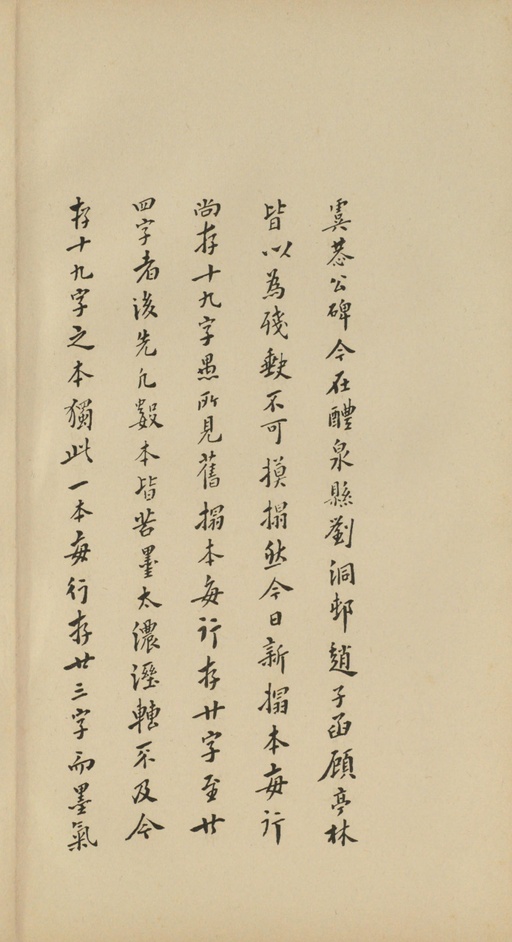 虞恭公碑今在醴泉縣劉洞邨趙子函顧亭林
皆以為殘缺不可摸搨然今日新搨本每行
尚存十九字愚所見舊搨本每行存廿字至廿
四字者後先凡數本皆苦墨太濃溼轉不及今
存十九字之本獨此一本每行存廿三字而墨氣